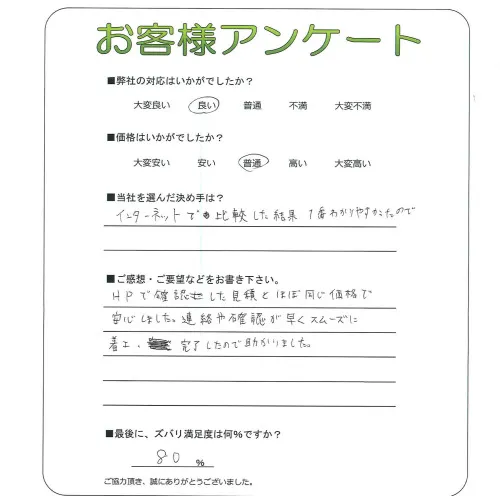 お客様アンケート
■弊社の対応はいかがでしたか？
大変良い 良い 普通 不満 大変不満
■価格はいかがでしたか？
大変安い 安い 普通 高い 大変高い
■当社を選んだ決め手は？
インターネットで比較した結果 1番わかりやすかったので
■ご感想・ご要望などをお書き下さい。
HPで確認した見積とほぼ同じ価格で
安心しました。連絡や確認が早くスムーズに
着工、完了したので助かりました。
■最後に、ズバリ満足度は何%ですか？
80 %
ご協力頂き、誠にありがとうございました。